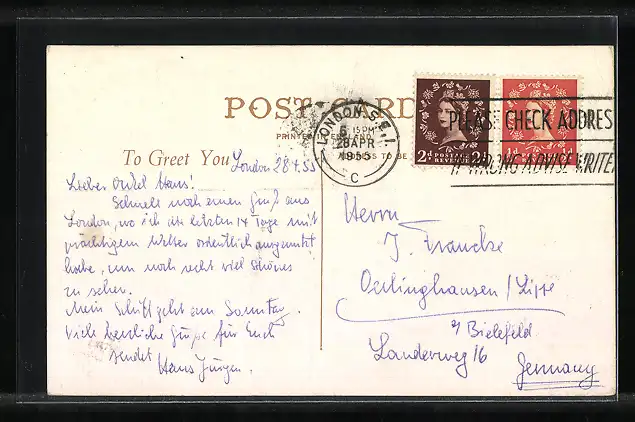 POST CARD
PRINTED IN ENGLAND
ADDRESS TO BE
To Greet You
LONDON. S.E.1
6 15PM
28 APR
1955
C
PLEASE CHECK ADDRES
IF WRONG ADVISE WRITER
2d POSTAGE REVENUE 2d
½d ½d
London 28.4.55
Lieber Onkel Hans!
Schnell noch einen Gruß aus
London, wo ich die letzten 14 Tage mit
prächtigem Wetter ordentlich ausgenutzt
habe, um noch recht viel Schönes
zu sehen.
Mein Schiff geht am Sonntag.
Viele herzliche Grüße für Euch
sendet Hans Jürgen.
Herrn
J. Francke
Oerlinghausen / Lippe
b/ Bielefeld
Landerweg 16
Germany